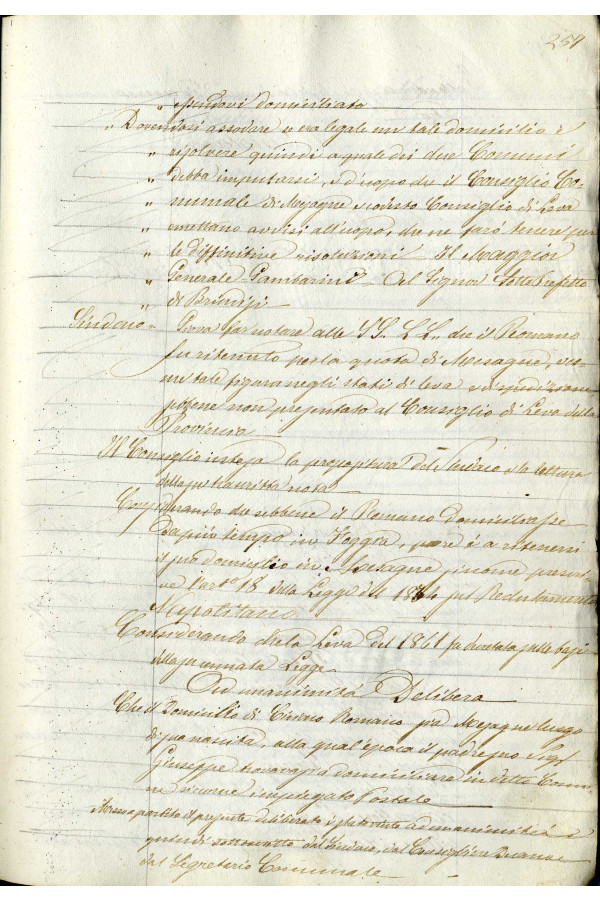 257
„ essendovi domiciliato
„ Dovendosi assodare se era legale un tale domicilio e
„ risolvere quindi a quale dei due Comuni
„ debba imputarsi, è d'uopo che il Consiglio Co-
„ munale di Mesagne e codesto Consiglio di Leva
„ emettano avvisi all'uopo, che ne farò tenere per
„ le diffinitive risoluzioni – Il Maggior
„ Generale – Al Signor Sotto Prefetto
„ di Brindisi –
Sindaco – far notare alle SS. LL. che il Romano
fu ritenuto per la quota di Mesagne, 
un tale figura negli stati di leva e di
non presentato al Consiglio di Leva della
Provincia
Il Consiglio intesa la propositura del Sindaco e la lettura
della su trascritta nota
Considerando che sebbene il Romano domiciliasse
da più tempo in Foggia, pure è a ritenersi
il suo domicilio in Mesagne, siccome prescri-
ve l'art.º 18 della Legge del sul Reclutamento
Napolitano
Considerando che la Leva del 1861 fu decretata sulle basi
della su Legge
Ad unanimità Delibera
Che il Domicilio di Romano sia Mesagne luogo
di sua nascita, alla qual'epoca il padre suo Sig.
Giuseppe trovavasi domiciliare in detto Comu-
ne siccome impiegato Postale –
Messo a partito il presente deliberato è stato ad unanimità e
quindi sottoscritto dal Sindaco, dal Consigliere e
dal Segretario Comunale –